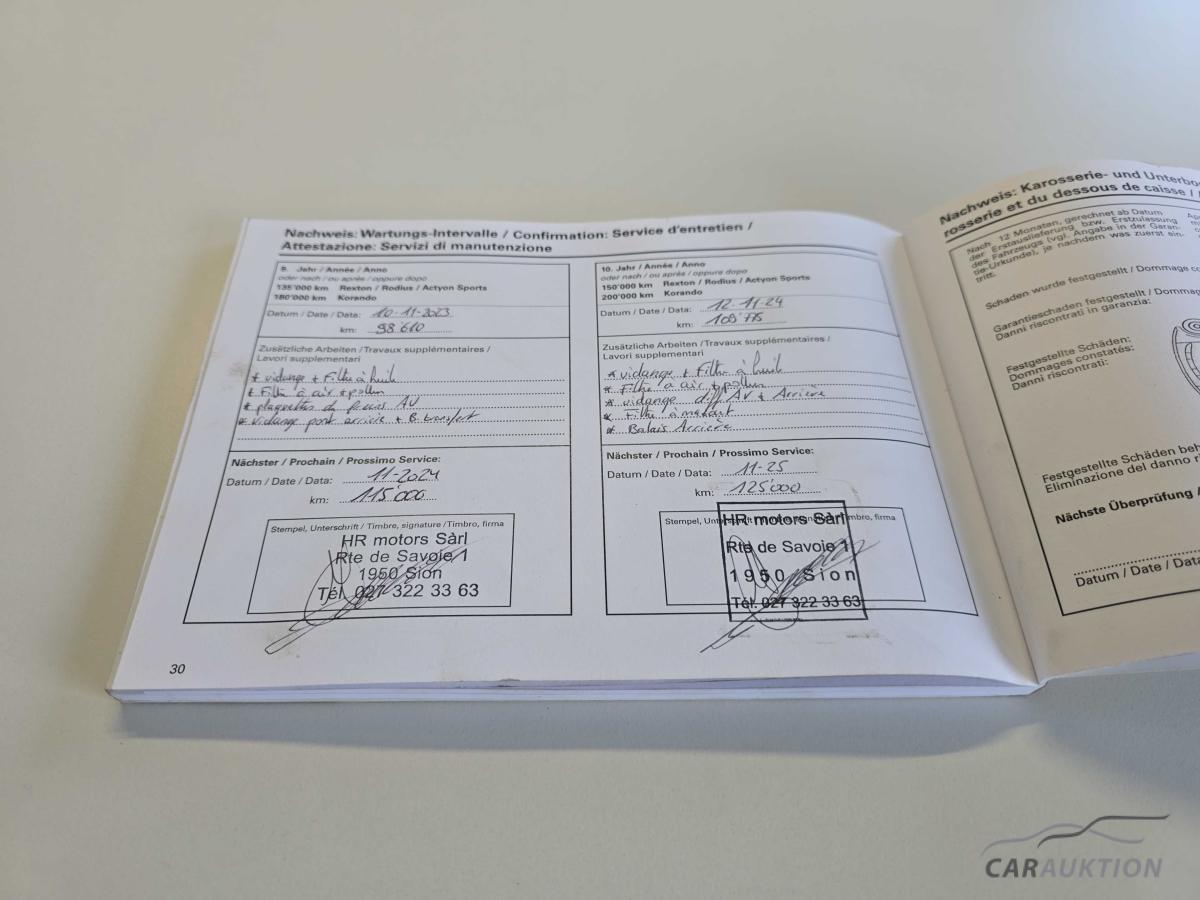 Nachweis: Wartungs-Intervalle / Confirmation: Service d'entretien /
Attestazione: Servizi di manutenzione
9. Jahr / Année / Anno
oder nach / ou après / oppure dopo
135'000 km Rexton / Rodius / Actyon Sports
180'000 km Korando
Datum / Date / Data: 10-11-2023
km: 98'610
Zusätzliche Arbeiten / Travaux supplémentaires /
Lavori supplementari
* vidange + Filtre à huile
* Filtre à air + pollen
* plaquettes de freins AV
* Vidange pont arrière + B transfert
Nächster / Prochain / Prossimo Service:
Datum / Date / Data: 11-2024
km: 115'000
Stempel, Unterschrift / Timbre, signature / Timbro, firma
HR motors Sàrl
Rte de Savoie 1
1950 Sion
Tél. 027 322 33 63
30
10. Jahr / Année / Anno
oder nach / ou après / oppure dopo
150'000 km Rexton / Rodius / Actyon Sports
200'000 km Korando
Datum / Date / Data: 12-11-24
km: 109'775
Zusätzliche Arbeiten / Travaux supplémentaires /
Lavori supplementari
* vidange + Filtre à huile
* Filtre à air + pollen
* vidange diff AV + Arrière
* Filtre à
* Balais Arrière
Nächster / Prochain / Prossimo Service:
Datum / Date / Data: 11-25
km: 125'000
Stempel, Unterschrift / Timbre, signature / Timbro, firma
HR motors Sàrl
Rte de Savoie 1
1950 Sion
Tél. 027 322 33 63
Nachweis: Karosserie- und Unterbo
rosserie et du dessous de caisse /
Nach 12 Monaten, gerechnet ab Datum
der Erstauslieferung bzw. Erstzulassung
des Fahrzeugs (vgl. Angabe in der Garan-
tie-Urkunde), je nachdem was zuerst ein-
tritt.
Schaden wurde festgestellt / Dommage co
Garantieschaden festgestellt / Dommag
Danni riscontrati in garanzia:
Festgestellte Schäden:
Dommages constatés:
Danni riscontrati:
Festgestellte Schäden beh
Eliminazione del danno r
Nächste Überprüfung /
Datum / Date / Data
CARAUKTION